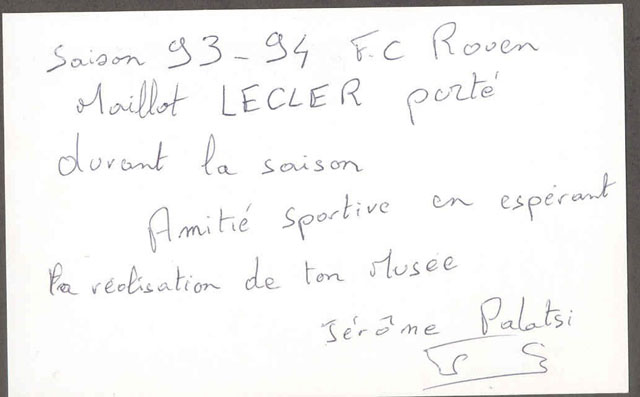 Saison 93-94 F.C Rouen
Maillot LECLER porté
durant la saison
Amitié sportive en espérant
la réalisation de ton Musée
Jérôme Palatsi